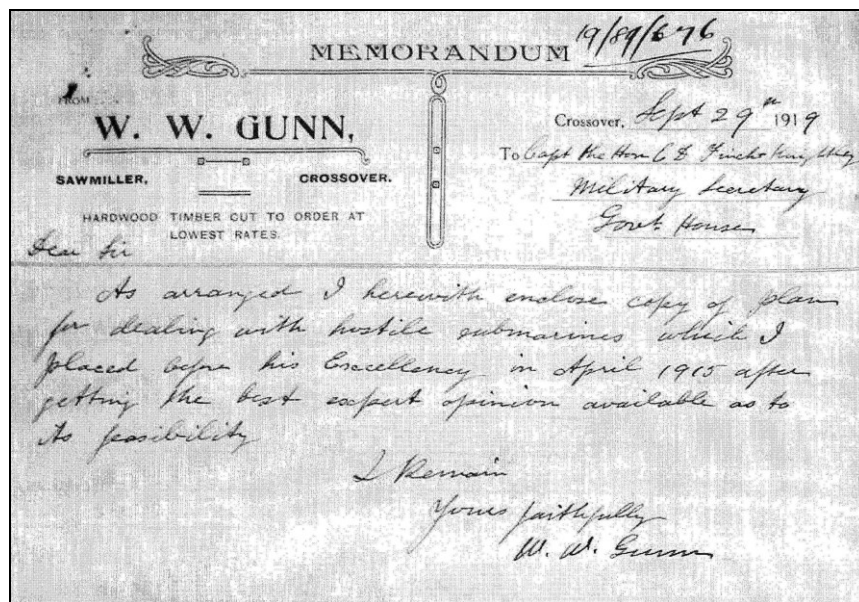 MEMORANDUM 19/89/676
FROM
W. W. GUNN,
SAWMILLER, CROSSOVER.
HARDWOOD TIMBER CUT TO ORDER AT
LOWEST RATES.
Crossover, Sept 29th 1919
To Capt the Hon C D Finch Knightley
Military Secretary
Govt. House
Dear Sir
As arranged I herewith enclose copy of plan
for dealing with hostile submarines which I
placed before his Excellency in April 1915 after
getting the best expert opinion available as to
its feasibility
I Remain
Yours faithfully
W. W. Gunn